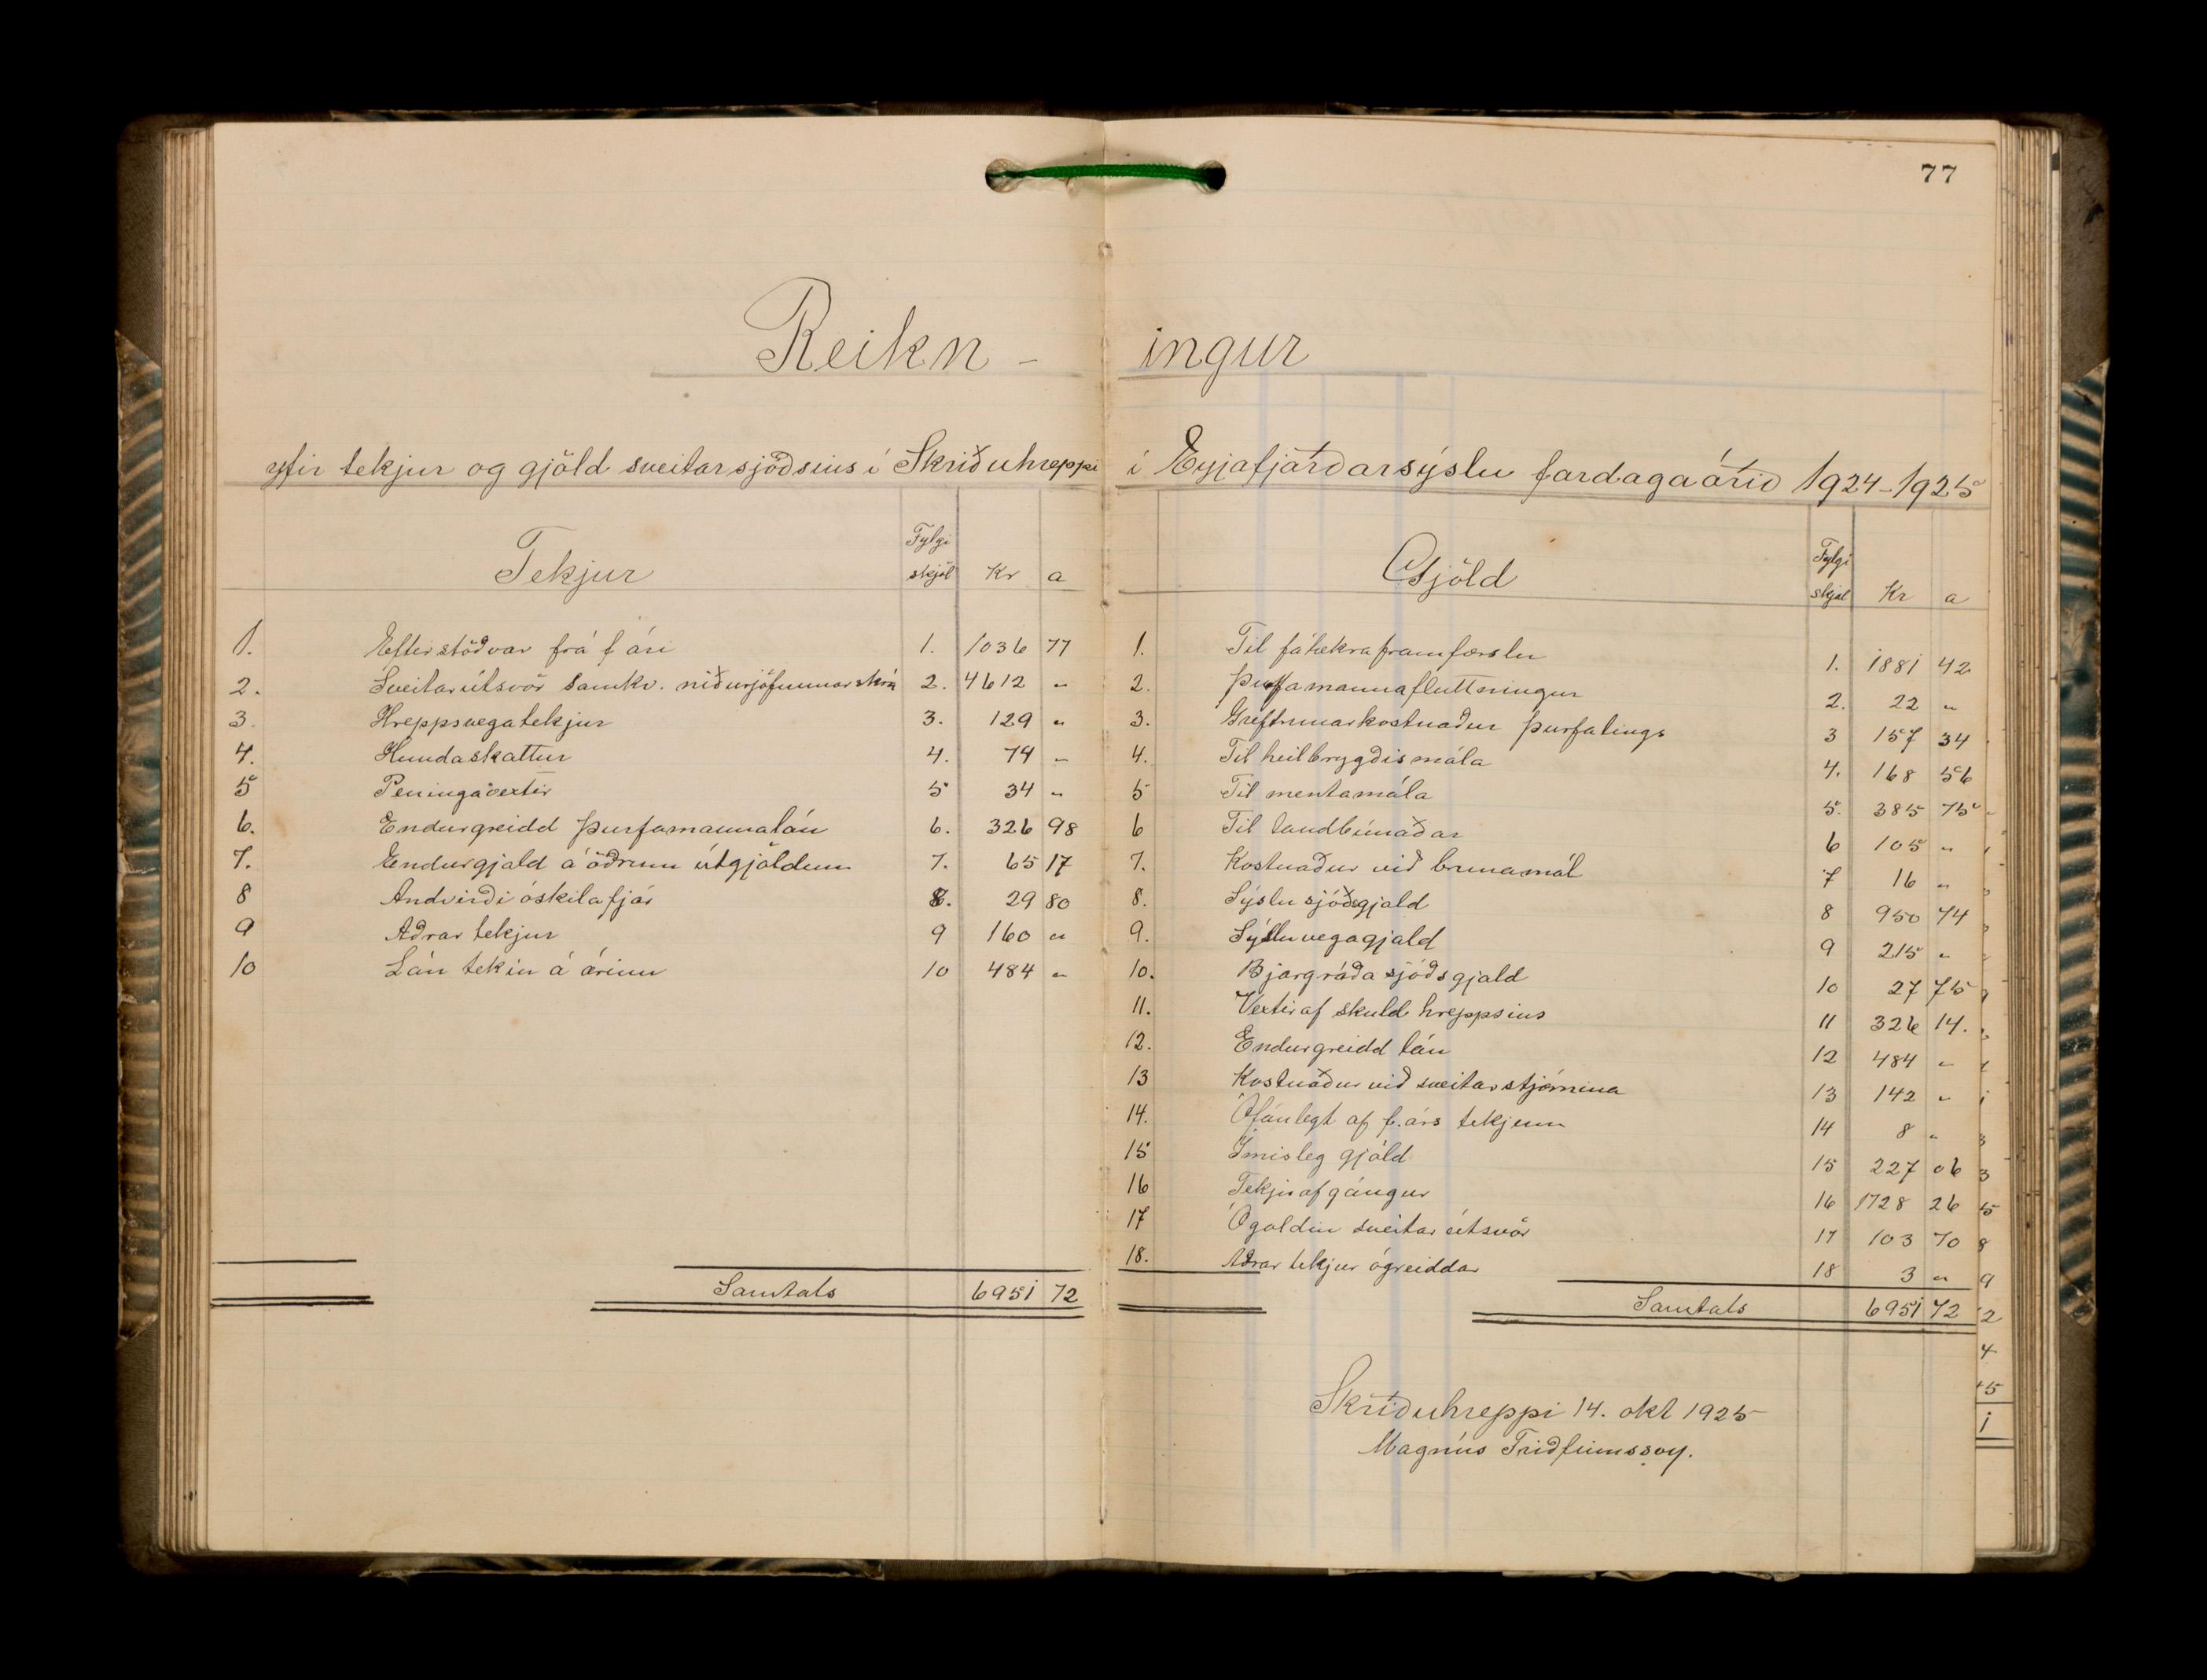 77
Reikn-
ingur
yfir tekjur og gjöld sveitarsjóðsins í Skriðuhreppi
í Eyjafjarðarsýslu fardagaárið 1924-1925
Tekjur Fylgi skjöl Kr a
1. Eftirstöðvar frá f ári 1. 1036 77
2. Sveitarútsvör samkv. niðurjöfnunarskrá 2. 4612 "
3. Hreppsvegatekjur 3. 129 "
4. Hundaskattur 4. 74 "
5 Peningavextir 5 34 "
6. Endurgreidd þurfamannalán 6. 326 98
7. Endurgjald á öðrum útgjöldum 7. 65 17
8 Andvirði óskilafjár 8. 29 80
9 Aðrar tekjur 9 160 "
10 Lán tekin á árinu 10 484 "
Samtals 6951 72
Gjöld Fylgi skjal Kr a
1. Til fátækraframfærslu 1. 1881 42
2. Þurfamannafluttningur 2. 22 "
3. Greftrunarkostnaður þurfalings 3 157 34
4. Til heilbrygðismála 4. 168 56
5 Til mentamála 5. 385 75
6 Til landbúnaðar 6 105 "
7. Kostnaður við brunamál 7 16 "
8. Sýslusjóðsgjald 8 950 74
9. Sýsluvegagjald 9 215 "
10. Bjargráðasjóðsgjald 10 27 75
11. Vextir af skuld hreppsins 11 326 14.
12. Endurgreidd lán 12 484 "
13 Kostnaður við sveitarstjórnina 13 142 "
14. Ófánlegt af f. árs tekjum 14 8 "
15 Ímisleg gjöld 15 227 06
16 Tekjuafgángur 16 1728 26
17 Ógoldin sveitarútsvör 17 103 70
18. Aðrar tekjur ógreiddar 18 3 "
Samtals 6951 72
Skriðuhreppi 14. okt 1925
Magnús Friðfinnsson.